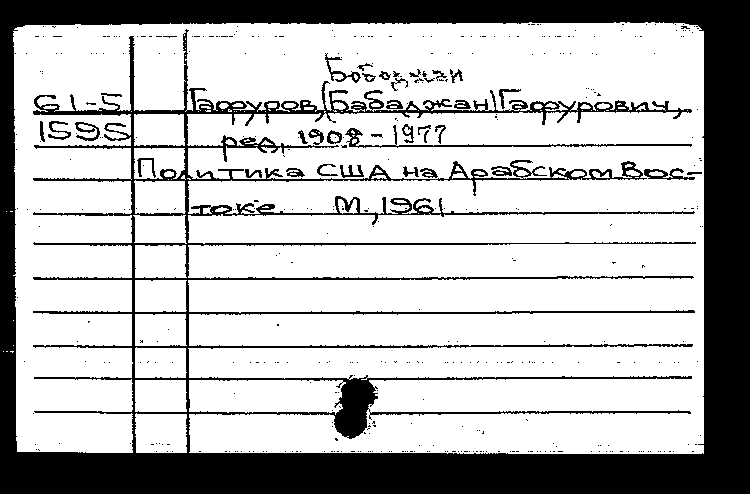 Бободжан
61-5 Гафуров, (Бабаджан) Гафурович,
1595 ред., 1908-1977
Политика США на Арабском Вос-
токе. М., 1961.